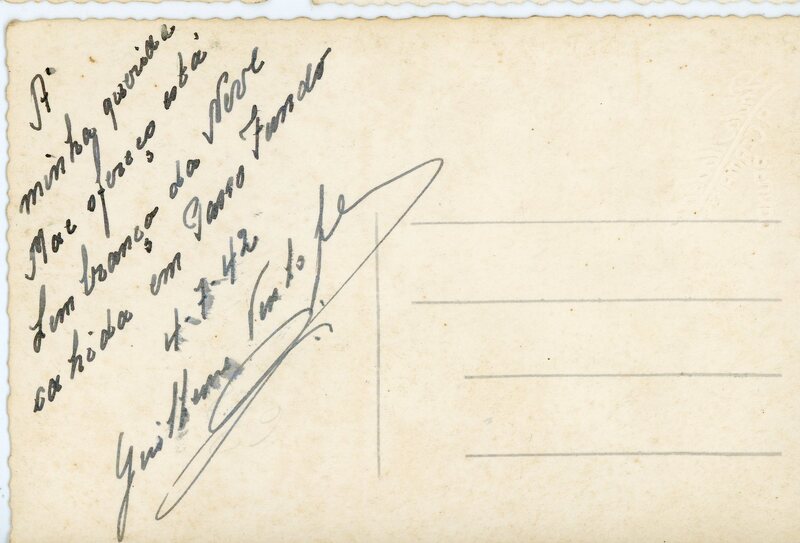 A'
minha querida
Mae ofereço está
Lembrança da Neve
cahida em Passo Fundo
4-7-42
Guilherme